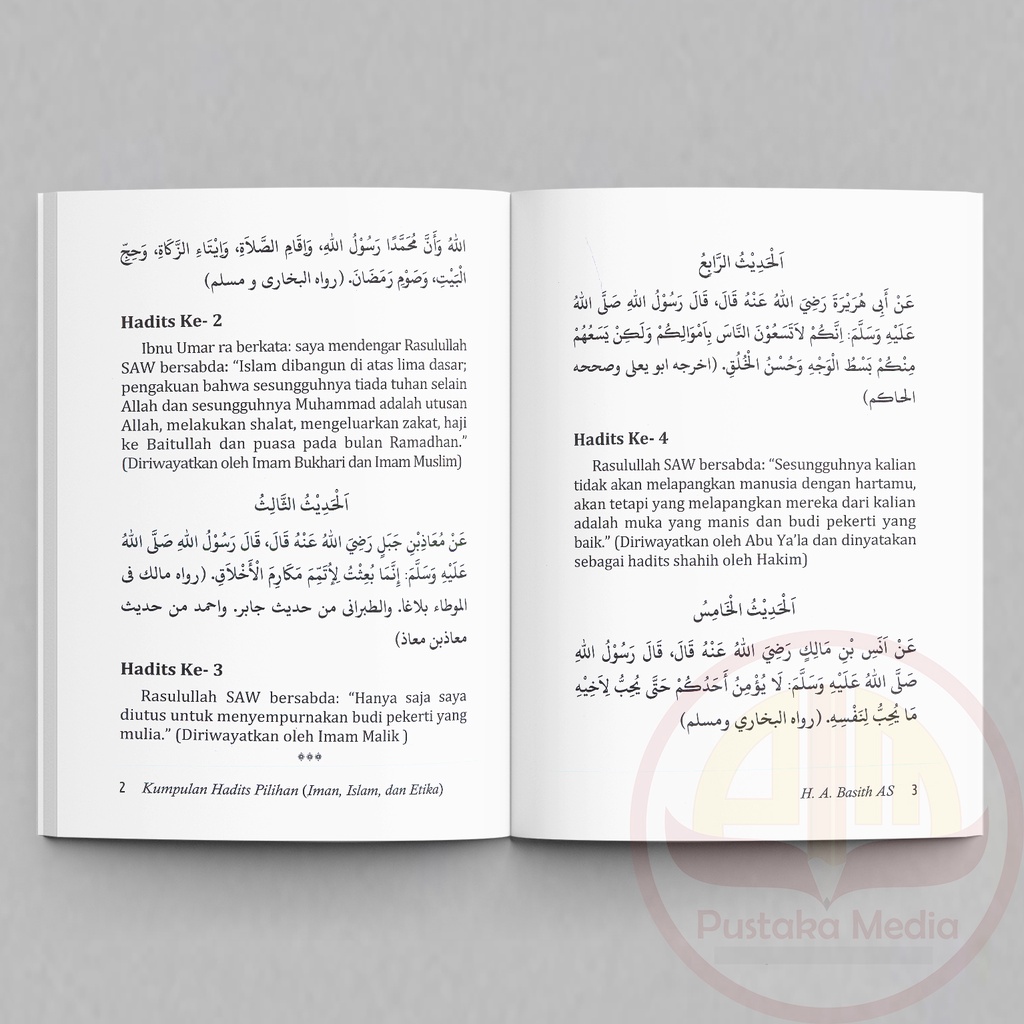 اللهُ وَأَنَّ مُحَمَّدًا رَسُوْلُ اللهِ، وَإِقَامِ الصَّلَاةِ، وَإِيْتَاءِ الزَّكَاةِ، وَحِجِّ
الْبَيْتِ، وَصَوْمِ رَمَضَانَ. (رواه البخارى و مسلم)
Hadits Ke- 2
Ibnu Umar ra berkata: saya mendengar Rasulullah
SAW bersabda: “Islam dibangun di atas lima dasar;
pengakuan bahwa sesungguhnya tiada tuhan selain
Allah dan sesungguhnya Muhammad adalah utusan
Allah, melakukan shalat, mengeluarkan zakat, haji
ke Baitullah dan puasa pada bulan Ramadhan.”
(Diriwayatkan oleh Imam Bukhari dan Imam Muslim)
اَلْحَدِيْثُ الثَّالِثُ
عَنْ مُعَاذِبْنِ جَبَلٍ رَضِيَ اللهُ عَنْهُ قَالَ، قَالَ رَسُوْلُ اللهِ صَلَّى اللهُ
عَلَيْهِ وَسَلَّمَ: إِنَّمَا بُعِثْتُ لِأُتَمِّمَ مَكَارِمَ الْأَخْلَاقِ. (رواه مالك فى
الموطاء بلاغا. والطبرانى من حديث جابر. واحمد من حديث
معاذبن معاذ)
Hadits Ke- 3
Rasulullah SAW bersabda: “Hanya saja saya
diutus untuk menyempurnakan budi pekerti yang
mulia.” (Diriwayatkan oleh Imam Malik )
2 Kumpulan Hadits Pilihan (Iman, Islam, dan Etika)
اَلْحَدِيْثُ الرَّابِعُ
عَنْ أَبِى هُرَيْرَةَ رَضِيَ اللهُ عَنْهُ قَالَ، قَالَ رَسُوْلُ اللهِ صَلَّى اللهُ
عَلَيْهِ وَسَلَّمَ: اِنَّكُمْ لَاتَسَعُوْنَ النَّاسَ بِاَمْوَالِكُمْ وَلَكِنْ يَسَعُهُمْ
مِنْكُمْ بَسْطُ الْوَجْهِ وَحُسْنُ الْخُلُقِ. (اخرجه ابو يعلى وصححه
الحاكم)
Hadits Ke- 4
Rasulullah SAW bersabda: “Sesungguhnya kalian
tidak akan melapangkan manusia dengan hartamu,
akan tetapi yang melapangkan mereka dari kalian
adalah muka yang manis dan budi pekerti yang
baik.” (Diriwayatkan oleh Abu Ya’la dan dinyatakan
sebagai hadits shahih oleh Hakim)
اَلْحَدِيْثُ الْخَامِسُ
عَنْ اَنَسِ بْنِ مَالِكٍ رَضِيَ اللهُ عَنْهُ قَالَ، قَالَ رَسُوْلُ اللهِ
صَلَّى اللهُ عَلَيْهِ وَسَلَّمَ: لَا يُؤْمِنُ أَحَدُكُمْ حَتَّى يُحِبُّ لِاَخِيْهِ
مَا يُحِبُّ لِنَفْسِهِ. (رواه البخاري ومسلم)
H. A. Basith AS 3
Pustaka Media